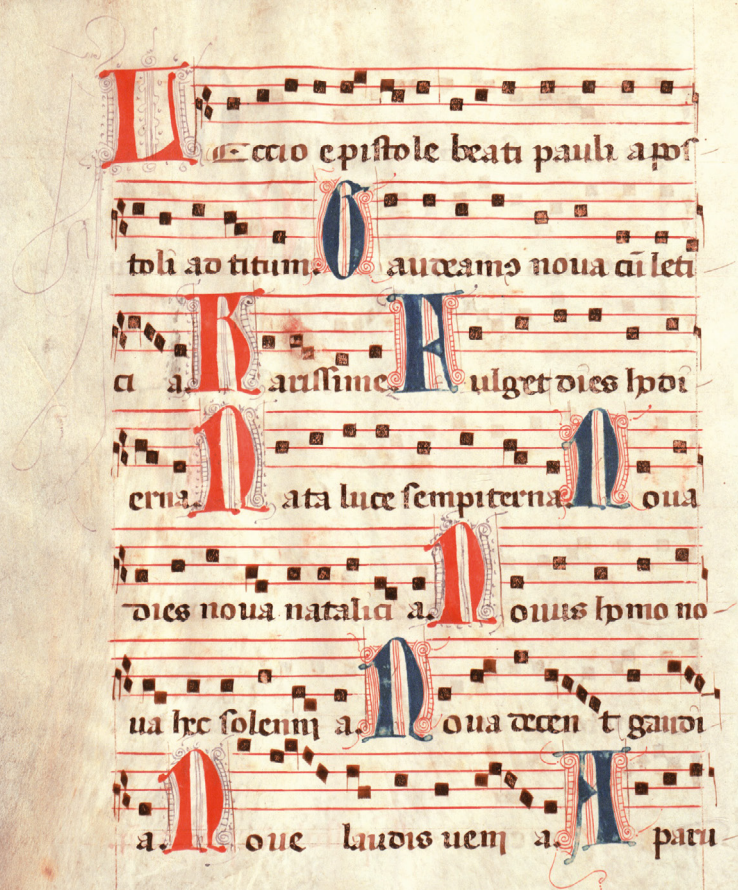 LEccio epistole beati pauli apos
toli ad titum. Gaudeamꝰ noua cū leti
ci a. Karissime. Fulget dies hodi
erna. Nata luce sempiterna. Noua
dies noua natalici a. Nouus homo no
ua hec solenni a. Noua decen t gaudi
a. Noue laudis ueni a. Aparu